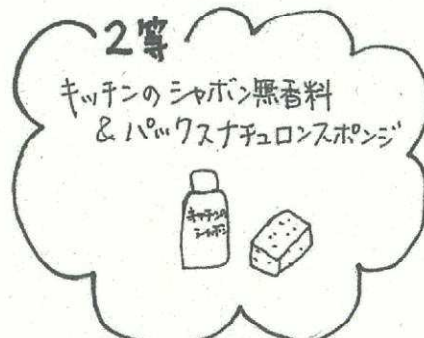 2等
キッチンのシャボン無香料
&パックスナチュロンスポンジ
キッチンの
シャボン